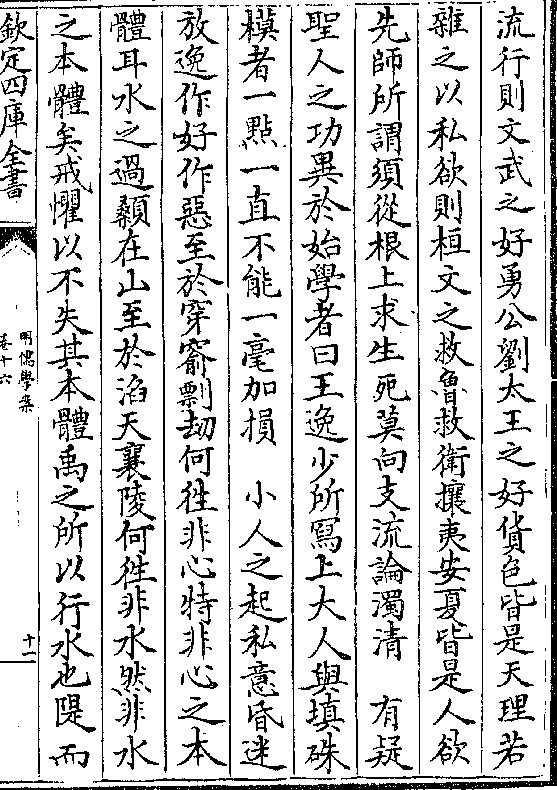 流行則文武之好勇公劉太王之好貨色皆是天理若
雜之以私欲則桓文之救魯救衛攘夷安夏皆是人欲
先師所謂須從根上求生死莫向支流論濁清　有疑
聖人之功異於始學者曰王逸少所寫上大人與填硃
模者一點一直不能一毫加損　小人之起私意昏迷
放逸作好作惡至於穿窬剽劫何徃非心特非心之本
體耳水之過顙在山至於滔天襄陵何徃非水然非水
之本體矣戒懼以不失其本體禹之所以行水也隄而
欽定四庫全書
明儒學案
卷十六
十一